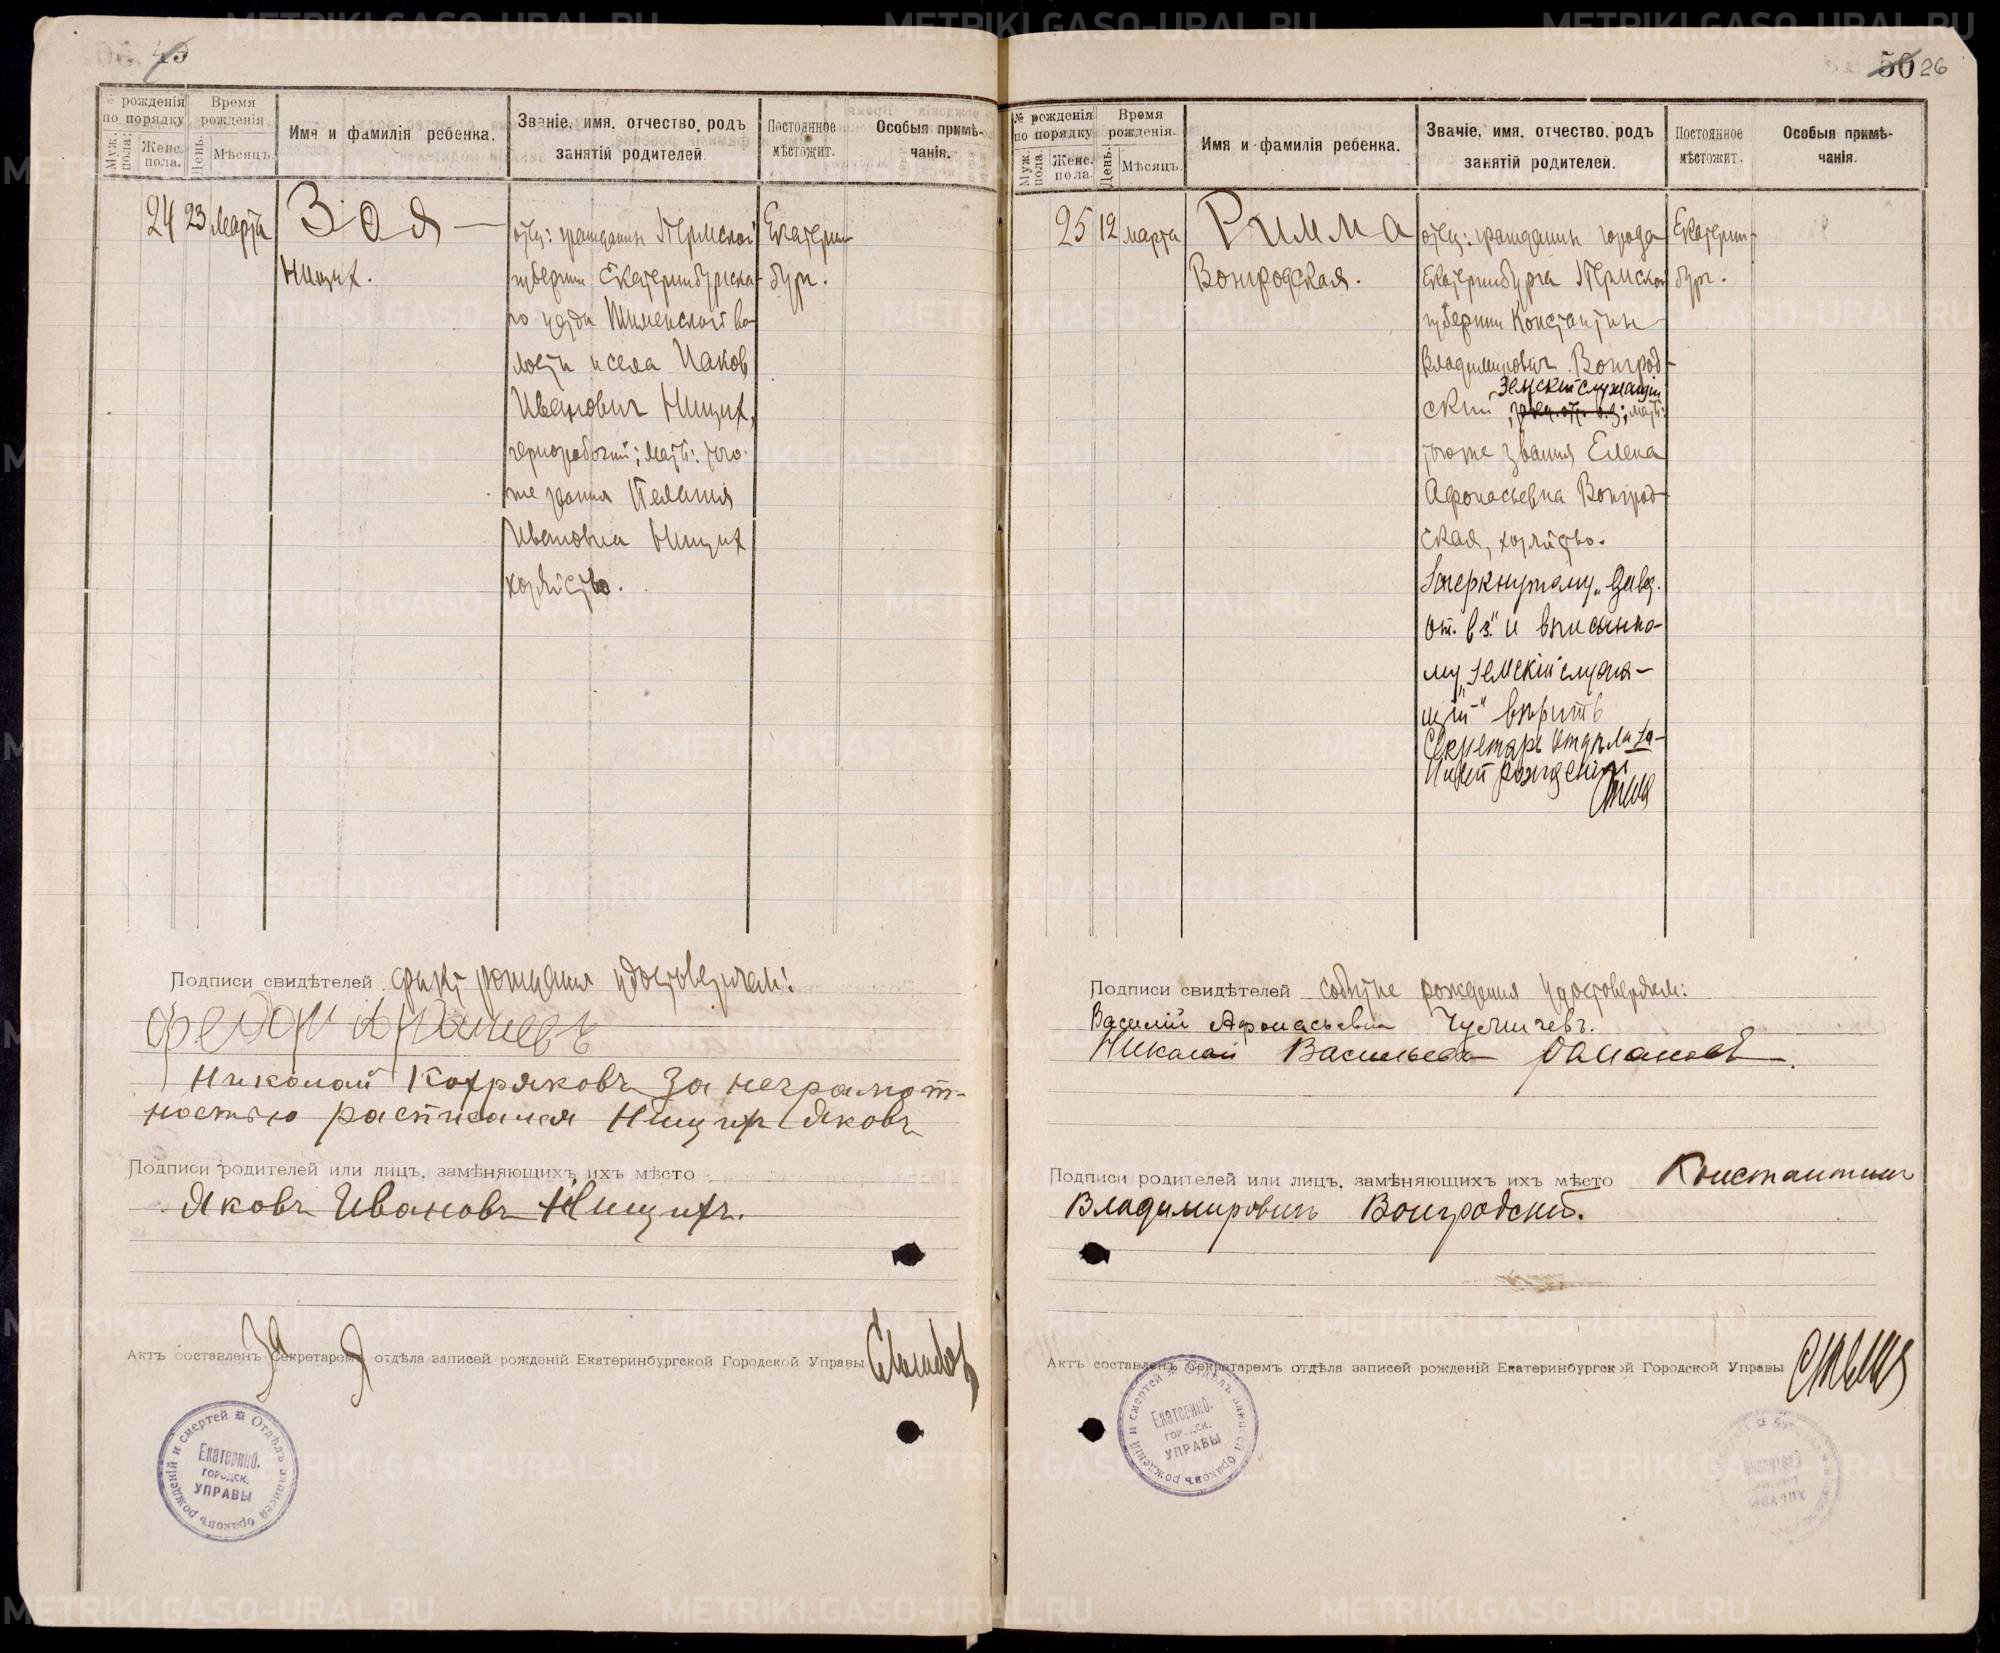 49
№ рожденія
по порядку
Муж. пола.
Женс. пола.
Время
рожденія.
День.
Мѣсяцъ.
Имя и фамилія ребенка.
Званіе, имя, отчество, родъ
занятій родителей.
Постоянное
мѣстожит.
Особыя примѣ-
чанія.
24 23 Марта
Зоя
Нищих.
отец: гражданин Пермской
губернии Екатеринбургска-
го уезда Шименской во-
лости и села Иаков
Иванович Нищих,
чернорабочий; мать: того-
же звания Пелагия
Ивановна Нищих
хозяйство.
Екатерин-
бург.
Подписи свидѣтелей факт рождения удостоверяем:
Федор
Николай Кохряковъ За неграмот-
ностью расписался Нищихъ Яковъ
Подписи родителей или лицъ, замѣняющихъ ихъ мѣсто
Яковъ Ивановъ Нищихъ.
Актъ составленъ Секретаремъ отдѣла записей рожденій Екатеринбургской Городской Управы
За
Отдѣлъ записей браковъ рожденій и смертей
Екатеринб.
городск.
УПРАВЫ
50 26
№ рожденія
по порядку
Муж. пола.
Женс. пола.
Время
рожденія.
День.
Мѣсяцъ.
Имя и фамилія ребенка.
Званіе, имя, отчество, родъ
занятій родителей.
Постоянное
мѣстожит.
Особыя примѣ-
чанія.
25 12 марта
Римма
Вонгродская.
отец: гражданин города
Екатеринбурга Пермской
губернии Константин
Владимирович Вонгрод-
Земскій служащій
ский, мать:
того же звания Елена
Афонасьевна Вонгрод-
ская, хозяйство.
Зачеркнутому „Завед.
от. в з." и вписанно-
му „Земскій служа-
щій" вѣрить
Секретарь Отдѣла За-
писей рожденій
Екатерин-
бург.
Подписи свидѣтелей событие рождения удостоверяем:
Василій Афонасьевич
Николай Васильевъ
Подписи родителей или лицъ, замѣняющихъ ихъ мѣсто Константинъ
Владимировичъ Вонгродскій.
Актъ составленъ Секретаремъ отдѣла записей рожденій Екатеринбургской Городской Управы
Отдѣлъ записей браковъ рожденій и смертей
Екатеринб.
городск.
УПРАВЫ
METRIKI.GASO-URAL.RU